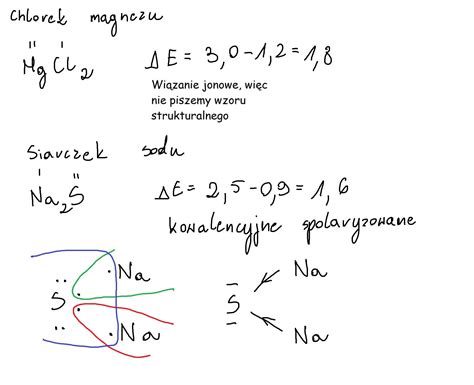 Chlorek magnezu
II I
MgCl2 ΔE = 3,0-1,2 = 1,8
Wiązanie jonowe, więc
nie piszemy wzoru
strukturalnego
Siarczek sodu
I II
Na2S ΔE = 2,5-0,9 = 1,6
kowalencyjne spolaryzowane
Na
S
Na
Na
S
Na